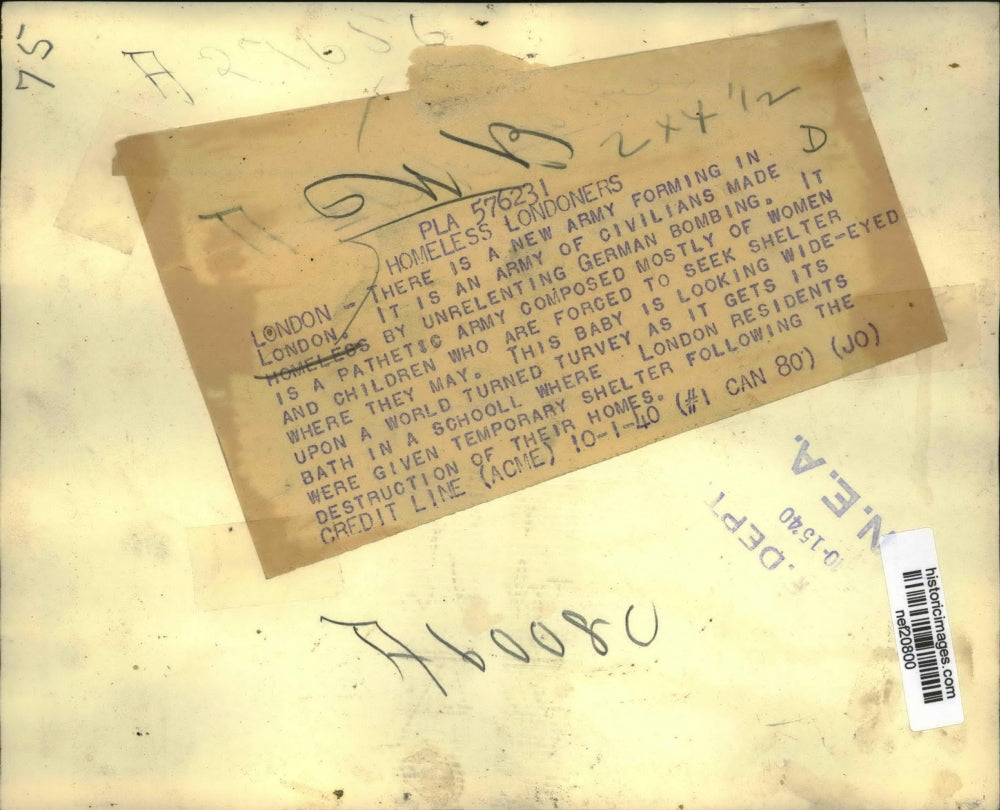 75
A 27656
2 x 4 1/2
D
PLA 576231
HOMELESS LONDONERS
LONDON - THERE IS A NEW ARMY FORMING IN
LONDON. IT IS AN ARMY OF CIVILIANS MADE
HOMELESS BY UNRELENTING GERMAN BOMBING. IT
IS A PATHETIC ARMY COMPOSED MOSTLY OF WOMEN
AND CHILDREN WHO ARE FORCED TO SEEK SHELTER
WHERE THEY MAY. THIS BABY IS LOOKING WIDE-EYED
UPON A WORLD TURNED TURVEY AS IT GETS ITS
BATH IN A SCHOOLL WHERE LONDON RESIDENTS
WERE GIVEN TEMPORARY SHELTER FOLLOWING THE
DESTRUCTION OF THEIR HOMES.
CREDIT LINE (ACME) 10-1-40 (#1 CAN 80') (JO)
N.E.A.
10-15-40
F. DEPT
historicimages.com
nef20800